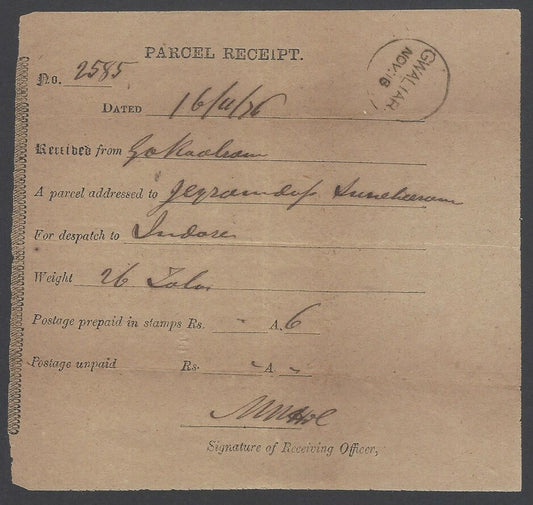 PARCEL RECEIPT.
GWALIAR
NOV. 16
No. 2585
DATED 16/11/76
Received from
A parcel addressed to
For despatch to Indore
Weight 26 Tolas
Postage prepaid in stamps Rs. - A. 6
Postage unpaid Rs. - A. -
Signature of Receiving Officer,